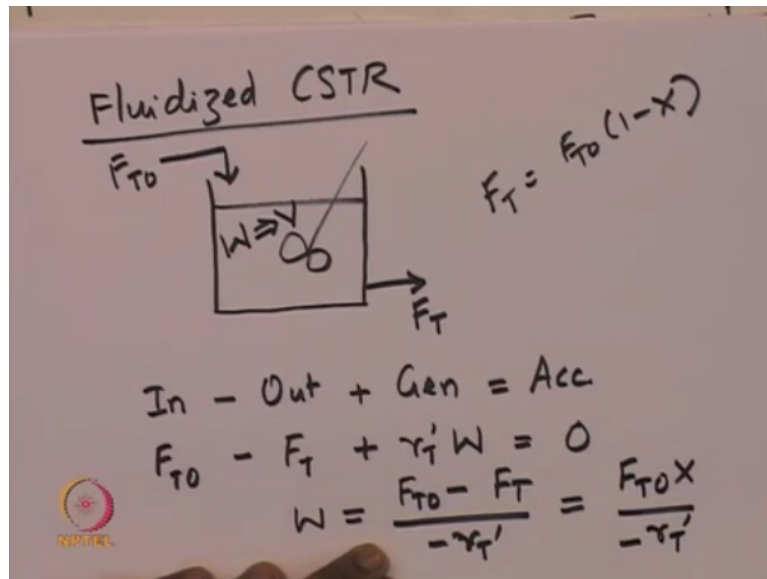 Fluidized CSTR
F_T0
F_T = F_T0 (1-X)
W ⇒ V
F_T
In - Out + Gen = Acc
F_T0 - F_T + r_T' W = 0
W = (F_T0 - F_T) / (-r_T') = F_T0 X / (-r_T')
NPTEL